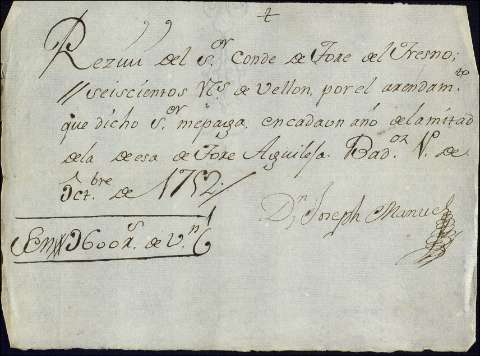 Rezuui del S.or Conde de Tore del Fresno;
seiscientos R.s de Vellon, por el arendam.to
que dicho S.or mepaga encadaun anó delamitad
dela de Tore Aguilosa. Bad.oz 1.º de
Oct.bre de 1752
D.n Joseph Manuel
Son 600 R.s de V.n